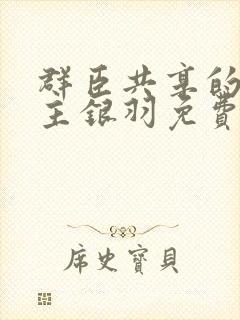 群臣共享的
主银羽免费
席史寶貝